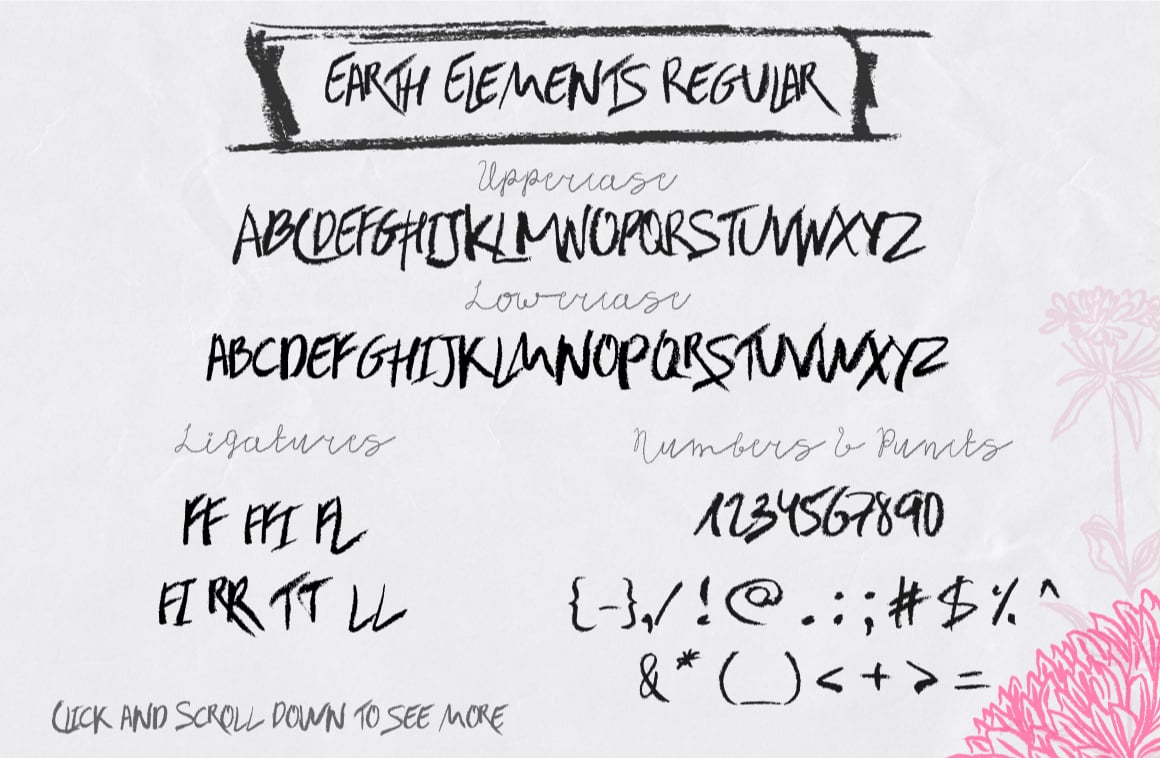 EARTH ELEMENTS REGULAR
Uppercase
ABCDEFGHIJKLMNOPQRSTUVWXYZ
Lowercase
ABCDEFGHIJKLMNOPQRSTUVWXYZ
Ligatures
FF FFI FL
FI RR TT LL
Numbers & Puncts
1234567890
{-},/ ! @ . : ; # $ % ^
& * ( _ ) < + > =
CLICK AND SCROLL DOWN TO SEE MORE